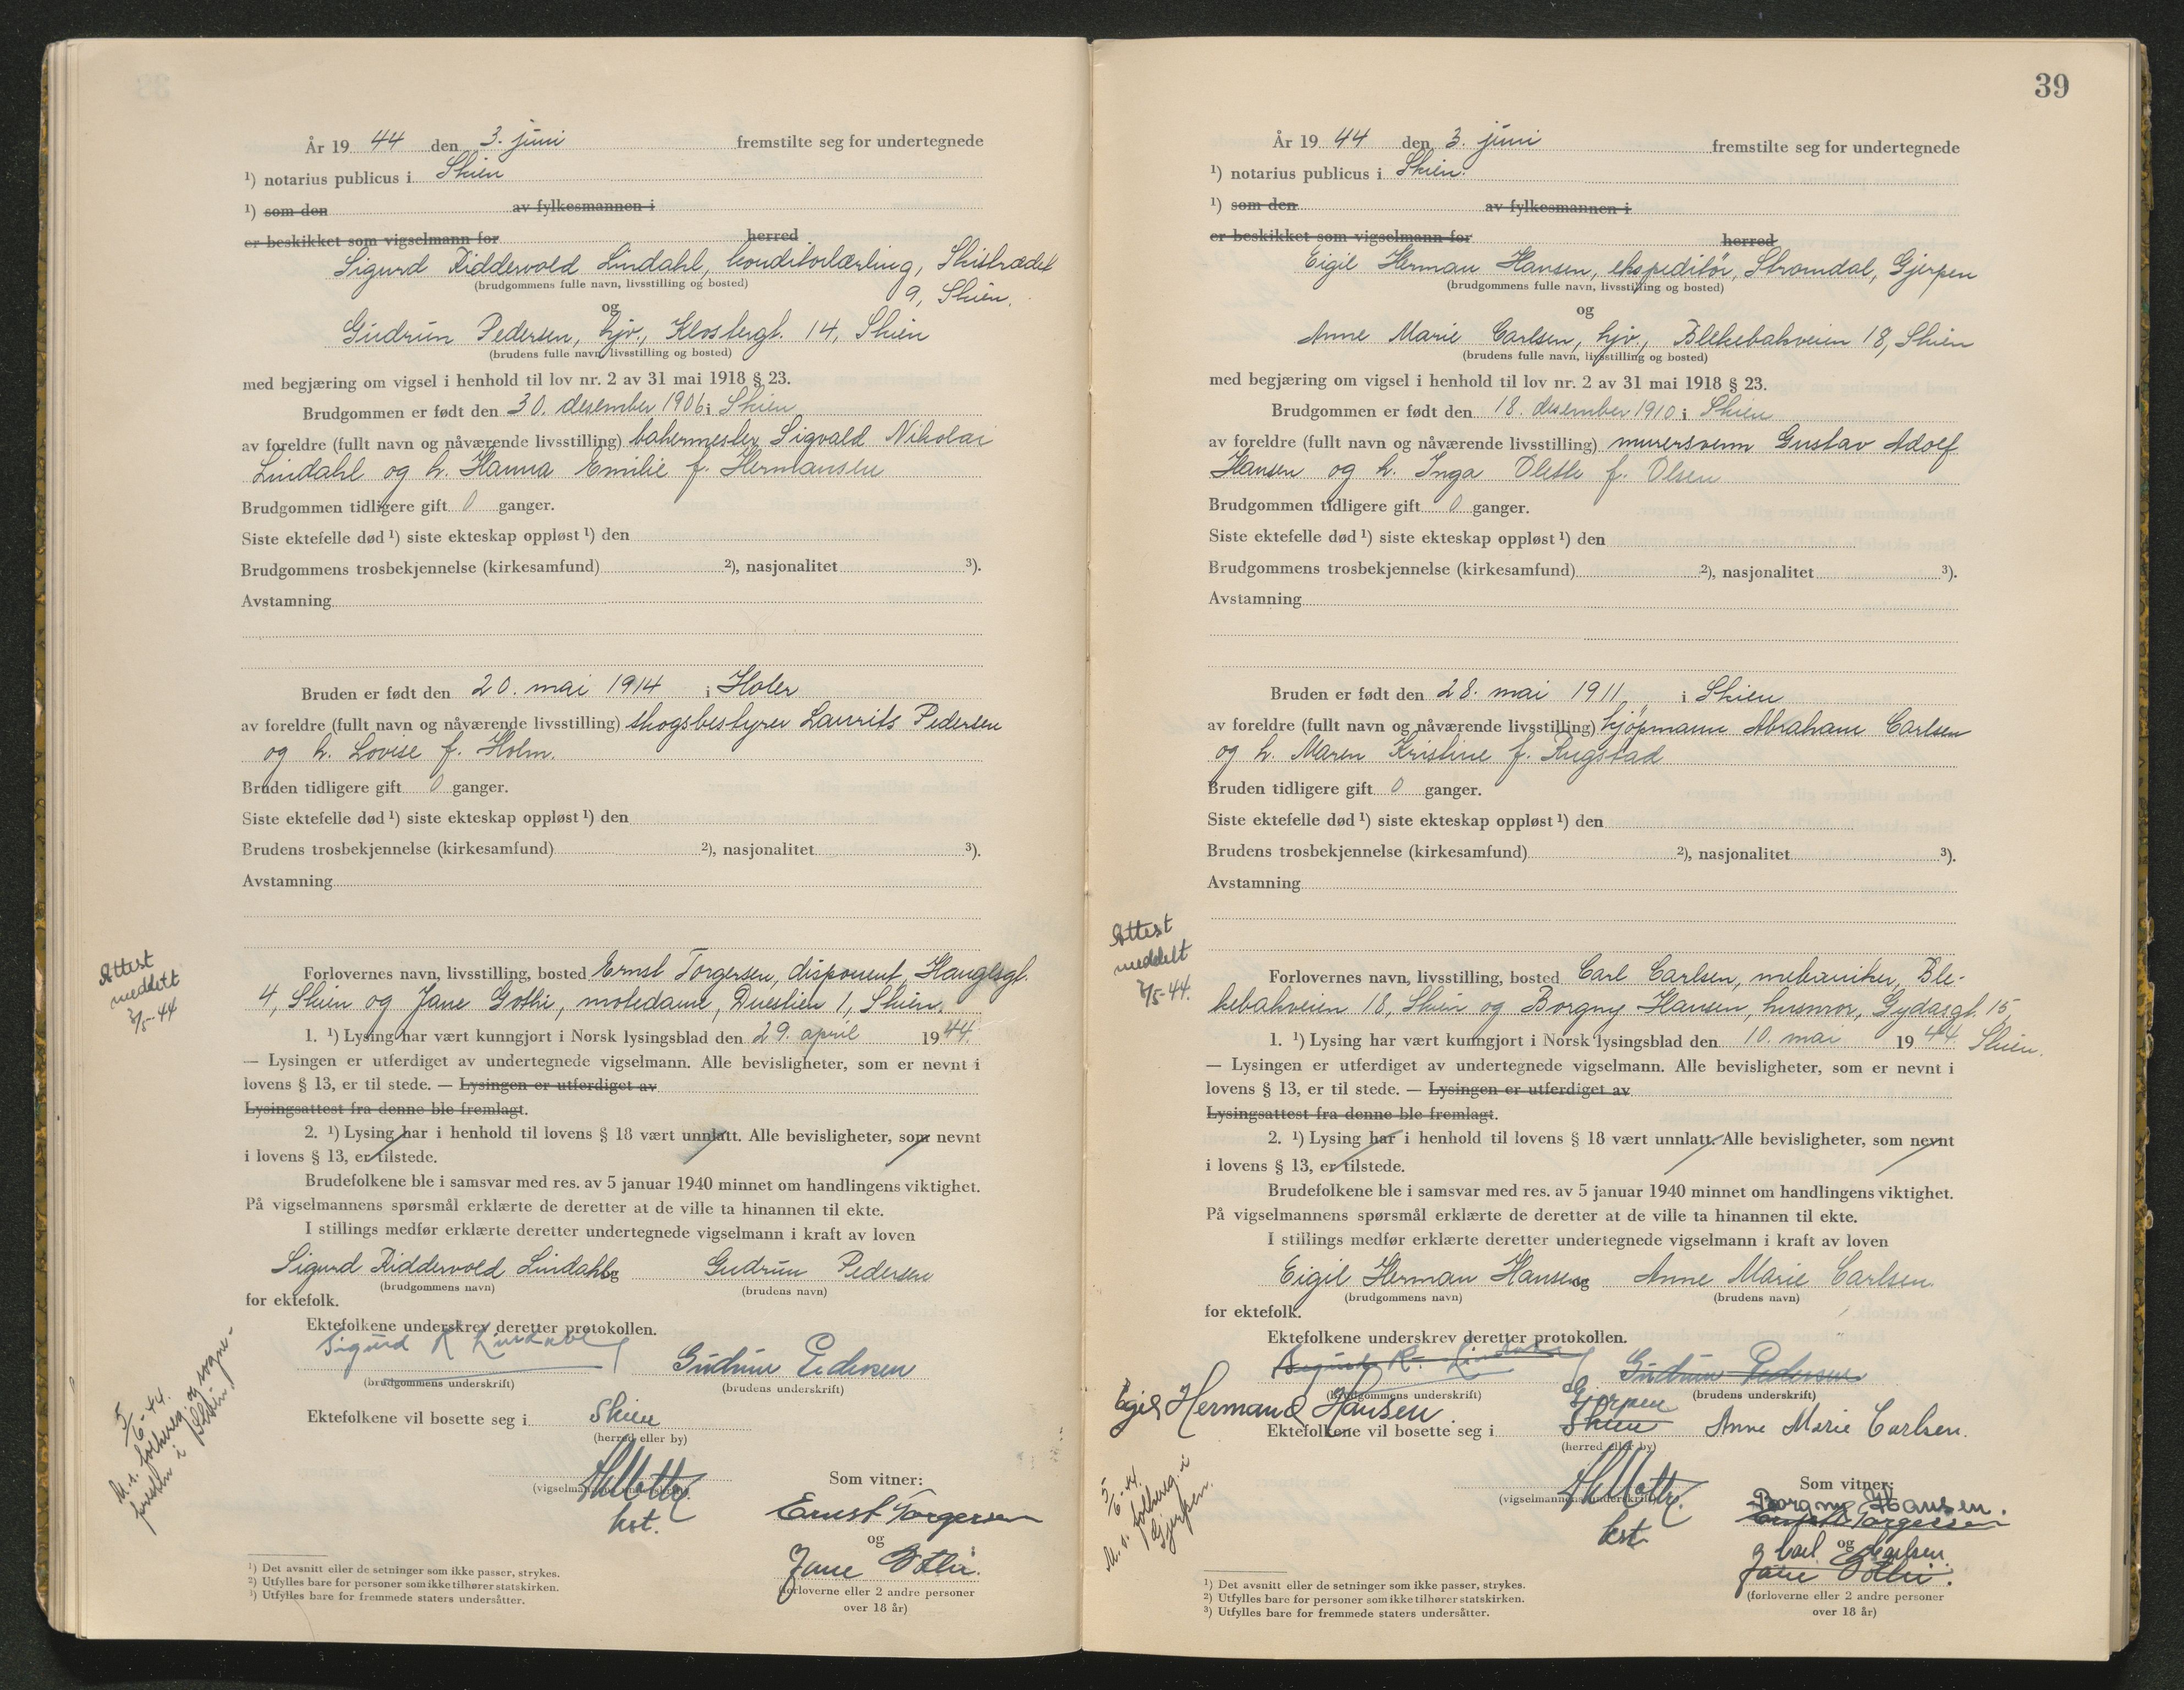 År 19 44 den 3. juni fremstilte seg for undertegnede
¹) notarius publicus i Skien
¹) som den av fylkesmannen i
er beskikket som vigselmann for herred
Sigurd Riddervold Lindahl, konditorlærling, Skistrædet
(brudgommens fulle navn, livsstilling og bosted)
9, Skien.
og
Gudrun Pedersen, hjv., Klostergt. 14, Skien
(brudens fulle navn, livsstilling og bosted)
med begjæring om vigsel i henhold til lov nr. 2 av 31 mai 1918 § 23.
Brudgommen er født den 30. desember 1906 i Skien
av foreldre (fullt navn og nåværende livsstilling) bakermester Sigvald Nikolai
Lindahl og h. Hanna Emilie f. Hermansen
Brudgommen tidligere gift 0 ganger.
Siste ektefelle død ¹) siste ekteskap oppløst ¹) den
Brudgommens trosbekjennelse (kirkesamfund) ²), nasjonalitet ³).
Avstamning
Bruden er født den 20. mai 1914 i Holer
av foreldre (fullt navn og nåværende livsstilling) skogsbestyrer Laurits Pedersen
og h. Lovise f. Holm.
Bruden tidligere gift 0 ganger.
Siste ektefelle død ¹) siste ekteskap oppløst ¹) den
Brudens trosbekjennelse (kirkesamfund) ²), nasjonalitet ³).
Avstamning
Attest
meddelt
2/5-44
Forlovernes navn, livsstilling, bosted Ernst Torgersen, disponent, Hauglsgt.
4, Skien og Jane Gothi, motedame, Duestien 1, Skien.
1. ¹) Lysing har vært kunngjort i Norsk lysingsblad den 29. april 1944.
— Lysingen er utferdiget av undertegnede vigselmann. Alle bevisligheter, som er nevnt i
lovens § 13, er til stede. — Lysingen er utferdiget av
Lysingsattest fra denne ble fremlagt.
2. ¹) Lysing har i henhold til lovens § 18 vært unnlatt. Alle bevisligheter, som nevnt
i lovens § 13, er tilstede.
Brudefolkene ble i samsvar med res. av 5 januar 1940 minnet om handlingens viktighet.
På vigselmannens spørsmål erklærte de deretter at de ville ta hinannen til ekte.
I stillings medfør erklærte deretter undertegnede vigselmann i kraft av loven
Sigurd Riddervold Lindahl og Gudrun Pedersen
(brudgommens navn) (brudens navn)
for ektefolk.
Ektefolkene underskrev deretter protokollen.
Sigurd R Lindahl Gudrun Pedersen
(brudgommens underskrift) (brudens underskrift)
5/6-44.
M. s. folkereg. og sogne-
presten i Skien
Ektefolkene vil bosette seg i Skien
(herred eller by)
(vigselmannens underskrift)
kst.
Som vitner:
Ernst Torgersen
og
Jane Gothi.
(forloverne eller 2 andre personer
over 18 år)
¹) Det avsnitt eller de setninger som ikke passer, strykes.
²) Utfylles bare for personer som ikke tilhører statskirken.
³) Utfylles bare for fremmede staters undersåtter.
39
År 19 44 den 3. juni fremstilte seg for undertegnede
¹) notarius publicus i Skien.
¹) som den av fylkesmannen i
er beskikket som vigselmann for herred
Eigil Herman Hansen, ekspeditør, Strømdal, Gjerpen
(brudgommens fulle navn, livsstilling og bosted)
og
Anne Marie Carlsen, hjv., Blekebakveien 18, Skien
(brudens fulle navn, livsstilling og bosted)
med begjæring om vigsel i henhold til lov nr. 2 av 31 mai 1918 § 23.
Brudgommen er født den 18. desember 1910 i Skien
av foreldre (fullt navn og nåværende livsstilling) murersvenn Gustav Adolf
Hansen og h. Inga Olette f. Olsen
Brudgommen tidligere gift 0 ganger.
Siste ektefelle død ¹) siste ekteskap oppløst ¹) den
Brudgommens trosbekjennelse (kirkesamfund) ²), nasjonalitet ³).
Avstamning
Bruden er født den 28. mai 1911 i Skien
av foreldre (fullt navn og nåværende livsstilling) kjøpmann Abraham Carlsen
og h. Maren Kristine f. Rugstad
Bruden tidligere gift 0 ganger.
Siste ektefelle død ¹) siste ekteskap oppløst ¹) den
Brudens trosbekjennelse (kirkesamfund) ²), nasjonalitet ³).
Avstamning
Attest
meddelt
2/5-44.
Forlovernes navn, livsstilling, bosted Carl Carlsen, mekaniker, Ble-
kebakveien 18, Skien og Borgny Hansen, husmor, Gydasgt. 15,
Skien.
1. ¹) Lysing har vært kunngjort i Norsk lysingsblad den 10. mai 1944.
— Lysingen er utferdiget av undertegnede vigselmann. Alle bevisligheter, som er nevnt i
lovens § 13, er til stede. — Lysingen er utferdiget av
Lysingsattest fra denne ble fremlagt.
2. ¹) Lysing har i henhold til lovens § 18 vært unnlatt. Alle bevisligheter, som nevnt
i lovens § 13, er tilstede.
Brudefolkene ble i samsvar med res. av 5 januar 1940 minnet om handlingens viktighet.
På vigselmannens spørsmål erklærte de deretter at de ville ta hinannen til ekte.
I stillings medfør erklærte deretter undertegnede vigselmann i kraft av loven
Eigil Herman Hansen og Anne Marie Carlsen.
(brudgommens navn) (brudens navn)
for ektefolk.
Ektefolkene underskrev deretter protokollen.
Sigurd R. Lindahl Gudrun Pedersen
(brudgommens underskrift) og (brudens underskrift)
Egil Herman Hansen Gjerpen
Ektefolkene vil bosette seg i Skien Anne Marie Carlsen.
(herred eller by)
5/6-44.
M. s. folkereg. i
Gjerpen.
(vigselmannens underskrift)
kst.
Som vitner:
Borgny Hansen.
Ernst Torgersen
og
Carl Carlsen.
Jane Gothi.
(forloverne eller 2 andre personer
over 18 år)
¹) Det avsnitt eller de setninger som ikke passer, strykes.
²) Utfylles bare for personer som ikke tilhører statskirken.
³) Utfylles bare for fremmede staters undersåtter.